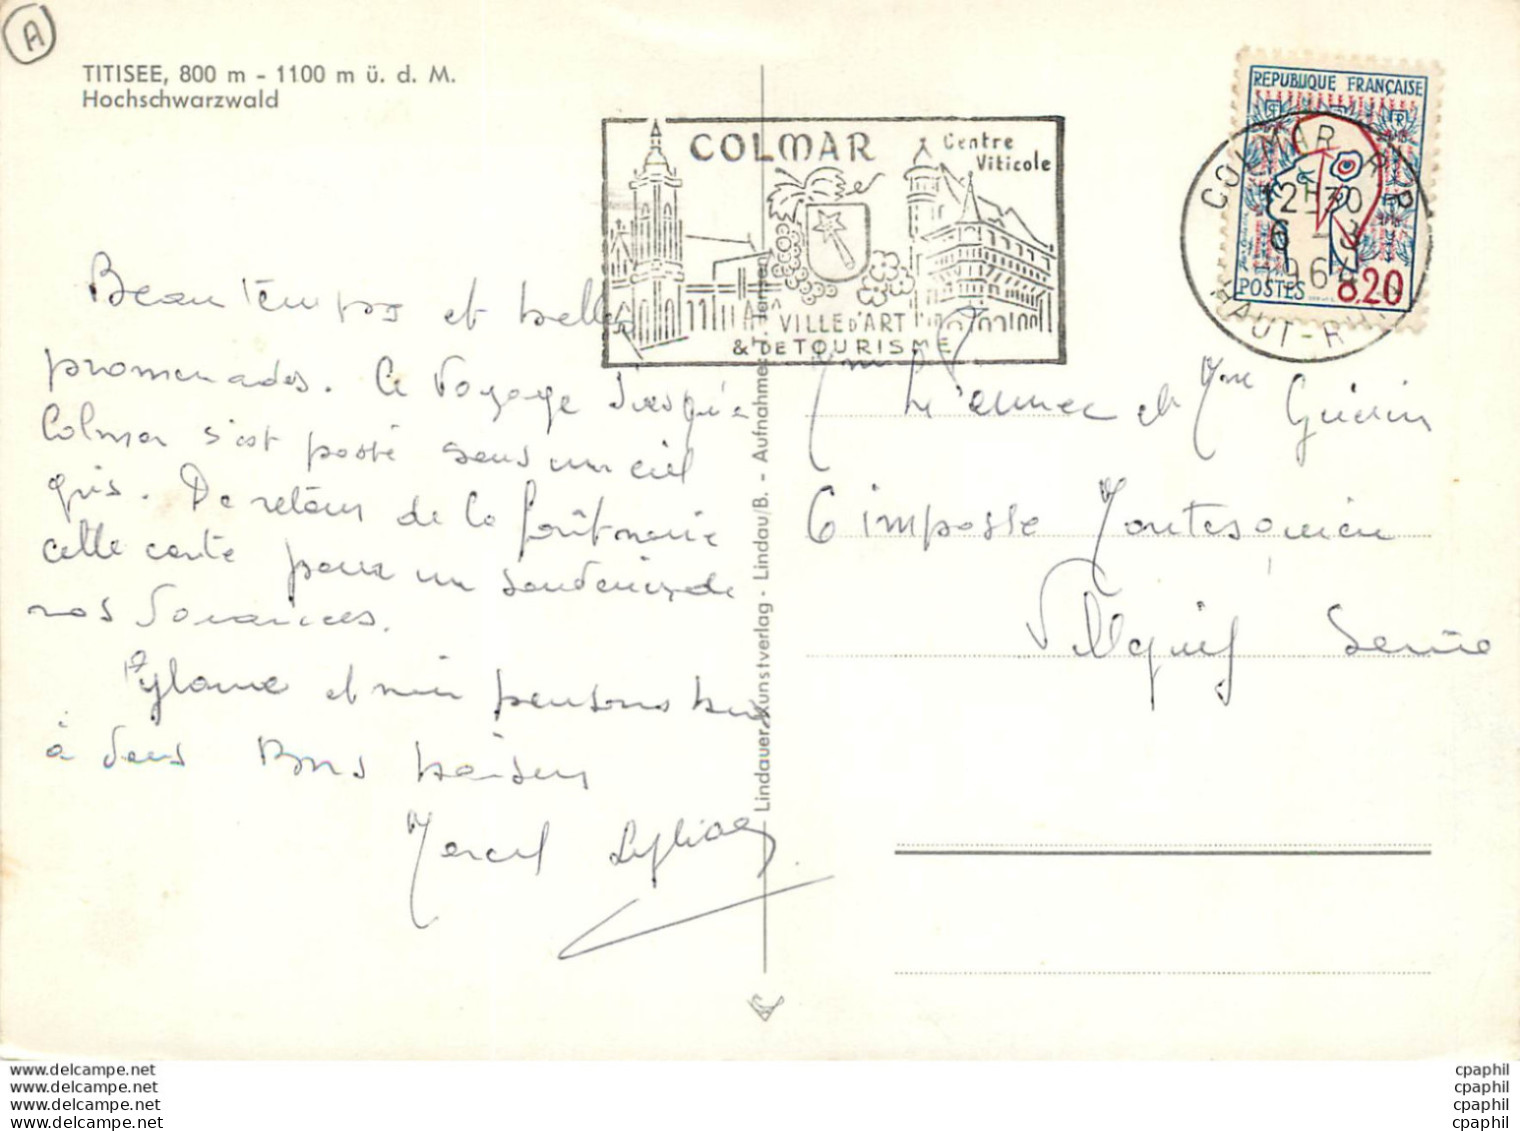 A
TITISEE, 800 m - 1100 m ü. d. M.
Hochschwarzwald
COLMAR
Centre
Viticole
VILLE D'ART
& DE TOURISME
REPUBLIQUE FRANÇAISE
POSTES 0,20
COLMAR R.P.
12H30
6 - 3
196
HAUT-R
Beau temps et belles
promenades. Ce voyage jusqu'à
Colmar s'est passé sous un ciel
gris. De retour de la forêt noire
cette carte pour un souvenir de
nos vacances.
et moi pensons bien
à vous Bons baisers
Marcel
Lindauer Kunstverlag · Lindau/B. - Aufnahme:
et Mme Guérin
6 impasse Montesquieu
Villejuif Seine
www.delcampe.net
www.delcampe.net
www.delcampe.net
www.delcampe.net
cpaphil
cpaphil
cpaphil
cpaphil